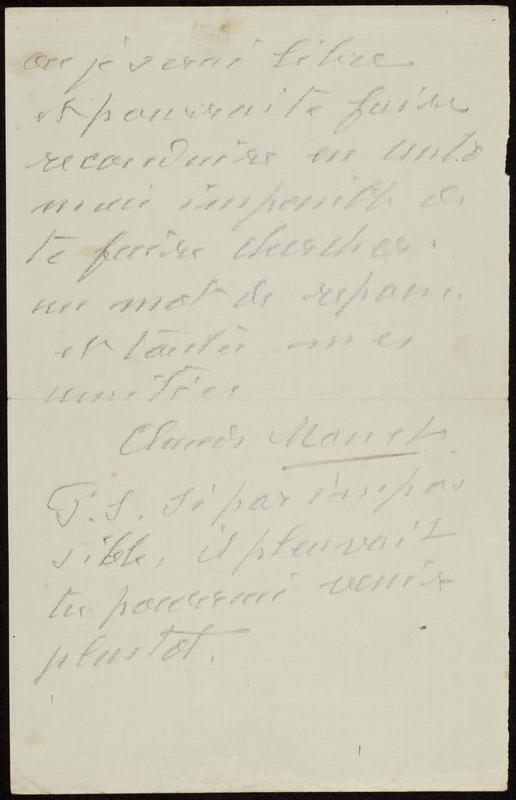 ou je serai libre
et pourrai te faire
reconduire en auto
mais impossible de
te faire chercher.
un mot de réponse
et toutes mes
amitiés
Claude Monet
P.S. Si par impos
sible, il pleuvait
tu pourrais venir
plustôt.